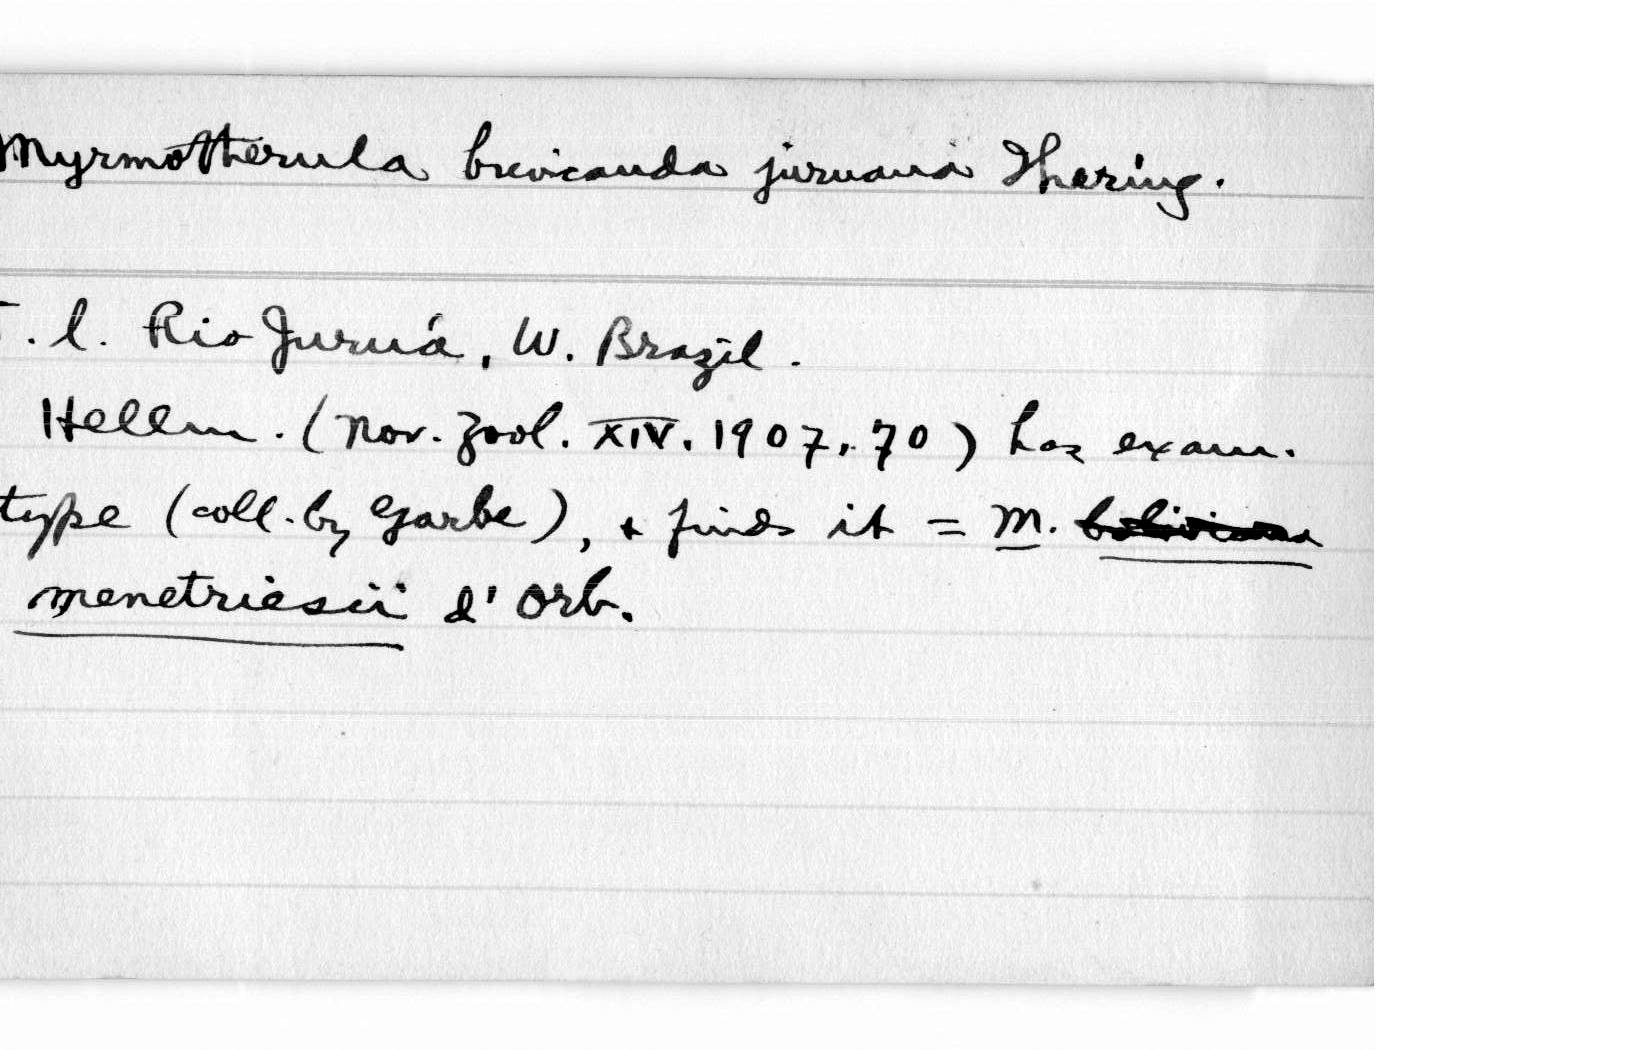 Myrmotherula brevicauda juruana Ihering.
T. l. Rio Juruá, W. Brazil.
Hellm. (Nov. Zool. XIV, 1907, 70) has exam.
type (coll. by Garbe), + finds it = M.
menetriesii d'Orb.